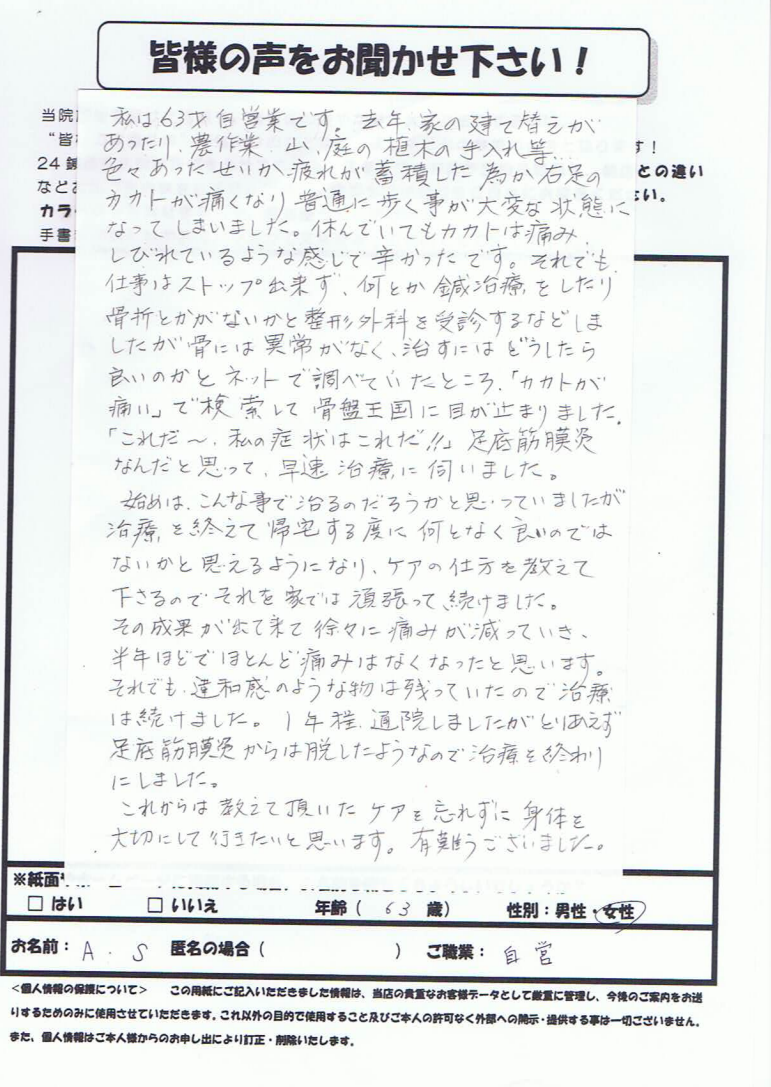 皆様の声をお聞かせ下さい！
当院
“皆
す！
24
との違い
などお
さい。
カラ
手書
私は63才自営業です。去年、家の建て替えが
あったり、農作業、山、庭の植木の手入れ等…
色々あったせいか疲れが蓄積した為か右足の
カカトが痛くなり普通に歩く事が大変な状態に
なってしまいました。休んでいてもカカトは痛み、
しびれているような感じで辛かったです。それでも、
仕事はストップ出来ず、何とか鍼治療をしたり
骨折とかがないかと整形外科を受診するなどしま
したが骨には異常がなく、治すにはどうしたら
良いのかとネットで調べていたところ、「カカトが
痛い」で検索して骨盤王国に目が止まりました。
「これだ～、私の症状はこれだ!!」足底筋膜炎
なんだと思って、早速治療に伺いました。
始めは、こんな事で治るのだろうかと思っていましたが
治療を終えて帰宅する度に何となく良いのでは
ないかと思えるようになり、ケアの仕方を教えて
下さるのでそれを家では頑張って続けました。
その成果が出て来て徐々に痛みが減っていき、
半年ほどでほとんど痛みはなくなったと思います。
それでも、違和感のような物は残っていたので治療
は続けました。1年程、通院しましたがとりあえず
足底筋膜炎からは脱したようなので治療を終わり
にしました。
これからは教えて頂いたケアを忘れずに身体を
大切にして行きたいと思います。有難うございました。
※紙面
□ はい □ いいえ 年齢（ 63 歳） 性別：男性・女性
お名前： A．S 匿名の場合（ ） ご職業： 自営
＜個人情報の保護について＞ この用紙にご記入いただきました情報は、当店の貴重なお客様データとして厳重に管理し、今後のご案内をお送
りするためのみに使用させていただきます。これ以外の目的で使用すること及びご本人の許可なく外部への開示・提供する事は一切ございません。
また、個人情報はご本人様からのお申し出により訂正・削除いたします。